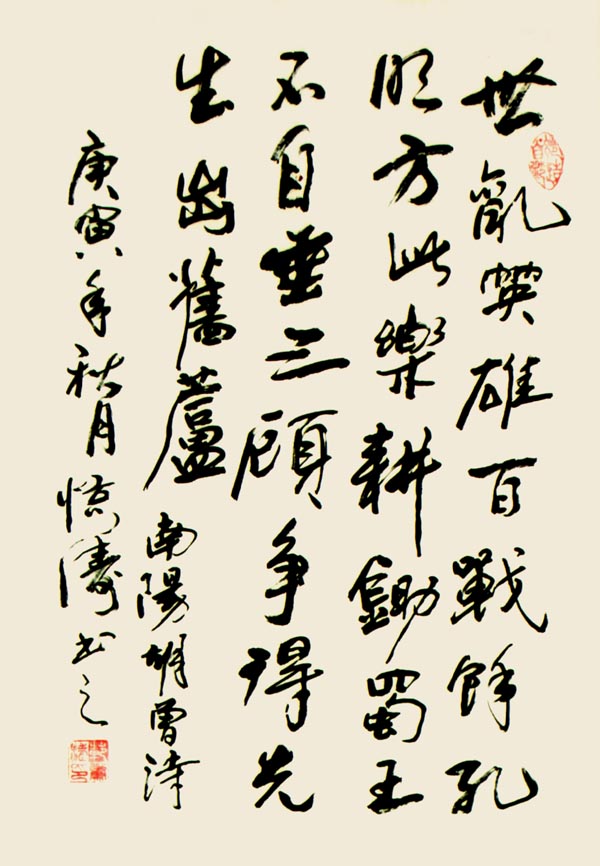 世亂英雄百戰餘孔
明方此樂耕鋤蜀王
不自垂三顧争得先
生出舊蘆
南陽胡曾詩
庚寅年秋月濤书之